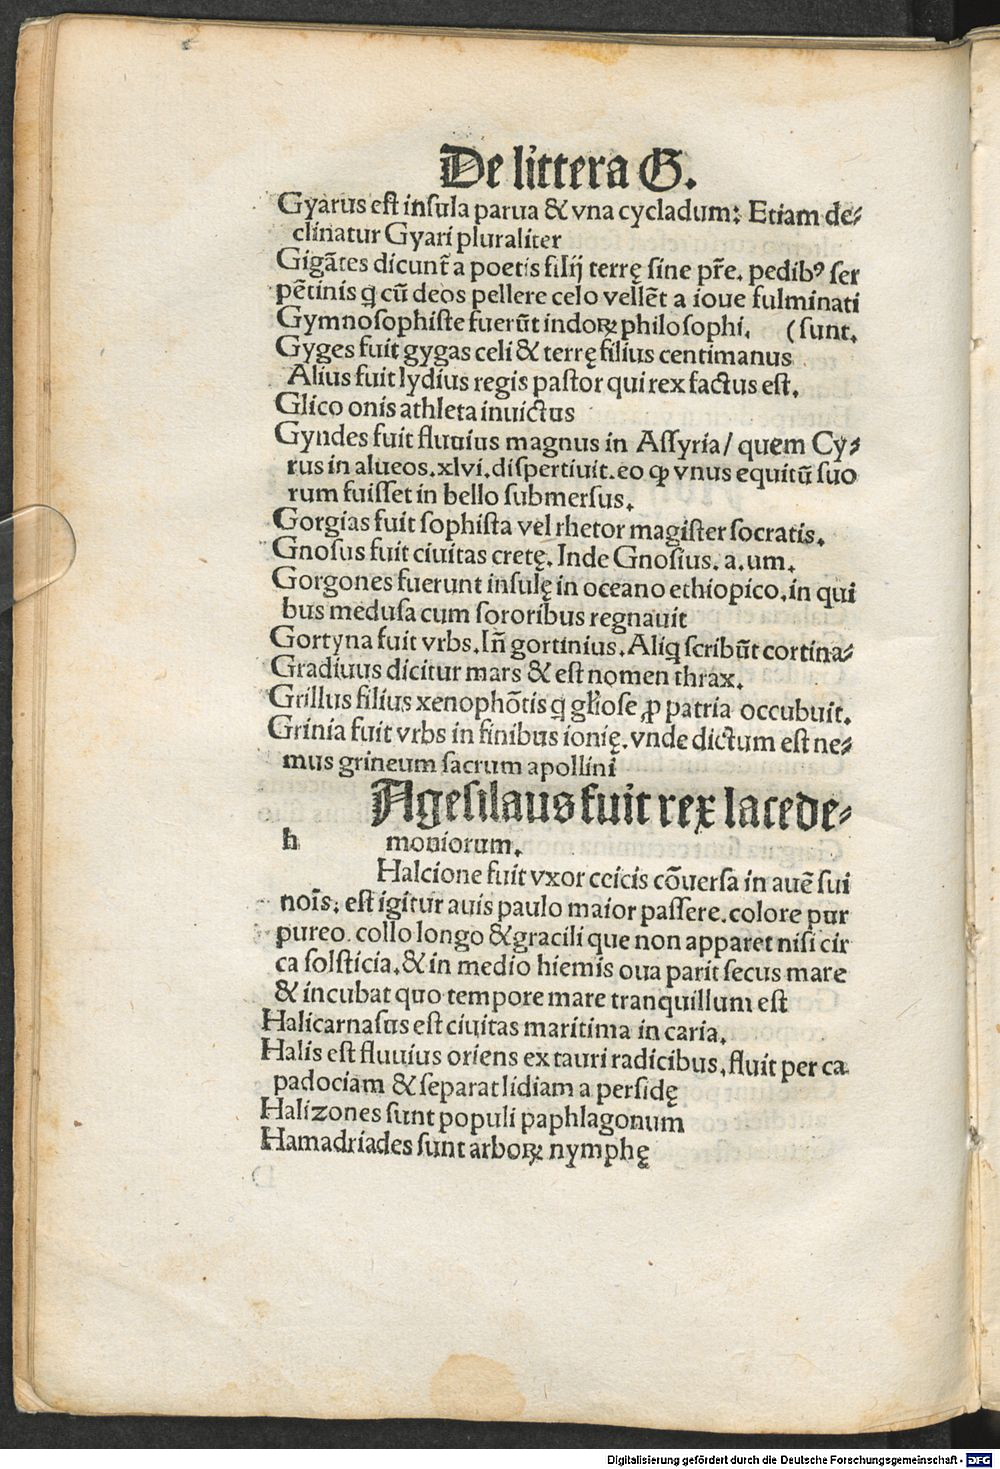 De littera G.
Gyarus est insula parua & vna cycladum: Etiam de⸗
clinatur Gyari pluraliter
Gigãtes dicunt̃ a poetis filij terrę sine pr̃e. pedibꝰ ser
pẽtinis q̃ cũ deos pellere celo vellẽt a ioue fulminati
Gymnosophiste fuerũt indoꝝ philosophi. (sunt.
Gyges fuit gygas celi & terrę filius centimanus
Alius fuit lydius regis pastor qui rex factus est.
Glico onis athleta inuictus
Gyndes fuit fluuius magnus in Assyria/ quem Cy⸗
rus in alueos.xlvi.dispertiuit.eo ꝙ vnus equitũ suo
rum fuisset in bello submersus.
Gorgias fuit sophista vel rhetor magister socratis.
Gnosus fuit ciuitas cretę. Inde Gnosius. a. um.
Gorgones fuerunt insulę in oceano ethiopico.in qui
bus medusa cum sororibus regnauit
Gortyna fuit vrbs. Iñ gortinius. Aliq̃ scribũt cortina⸗
Gradiuus dicitur mars & est nomen thrax.
Grillus filius xenophõtis q̃ gl'iose ꝓ patria occubuit.
Grinia fuit vrbs in finibus ionię. vnde dictum est ne⸗
mus grineum sacrum apollini
Agesilaus fuit rex lacede⸗
h moniorum.
Halcione fuit vxor ceicis cõuersa in auẽ sui
noĩs: est igitur auis paulo maior passere. colore pur
pureo. collo longo & gracili que non apparet nisi cir
ca solsticia. & in medio hiemis oua parit secus mare
& incubat quo tempore mare tranquillum est
Halicarnasus est ciuitas maritima in caria.
Halis est fluuius oriens ex tauri radicibus. fluit per ca
padociam & separat lidiam a persidę
Halizones sunt populi paphlagonum
Hamadriades sunt arboꝝ nymphę
Digitalisierung gefördert durch die Deutsche Forschungsgemeinschaft - DFG